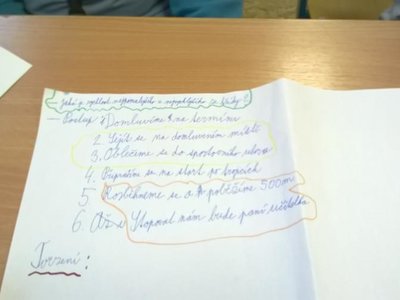 – Jaká je rychlost nejpomalejšího a nejrychlejšího ze třídy?
– Postup: 1. Domluvíme se na termínu
2. Sejít se na domluveném místě
3. Oblečeme se do sportovního
4. Připravím se na start po trojicích
5. Rozběhneme se a poběžíme 500m
6. Až Stopovat nám bude paní učitelka
Tvrzení: